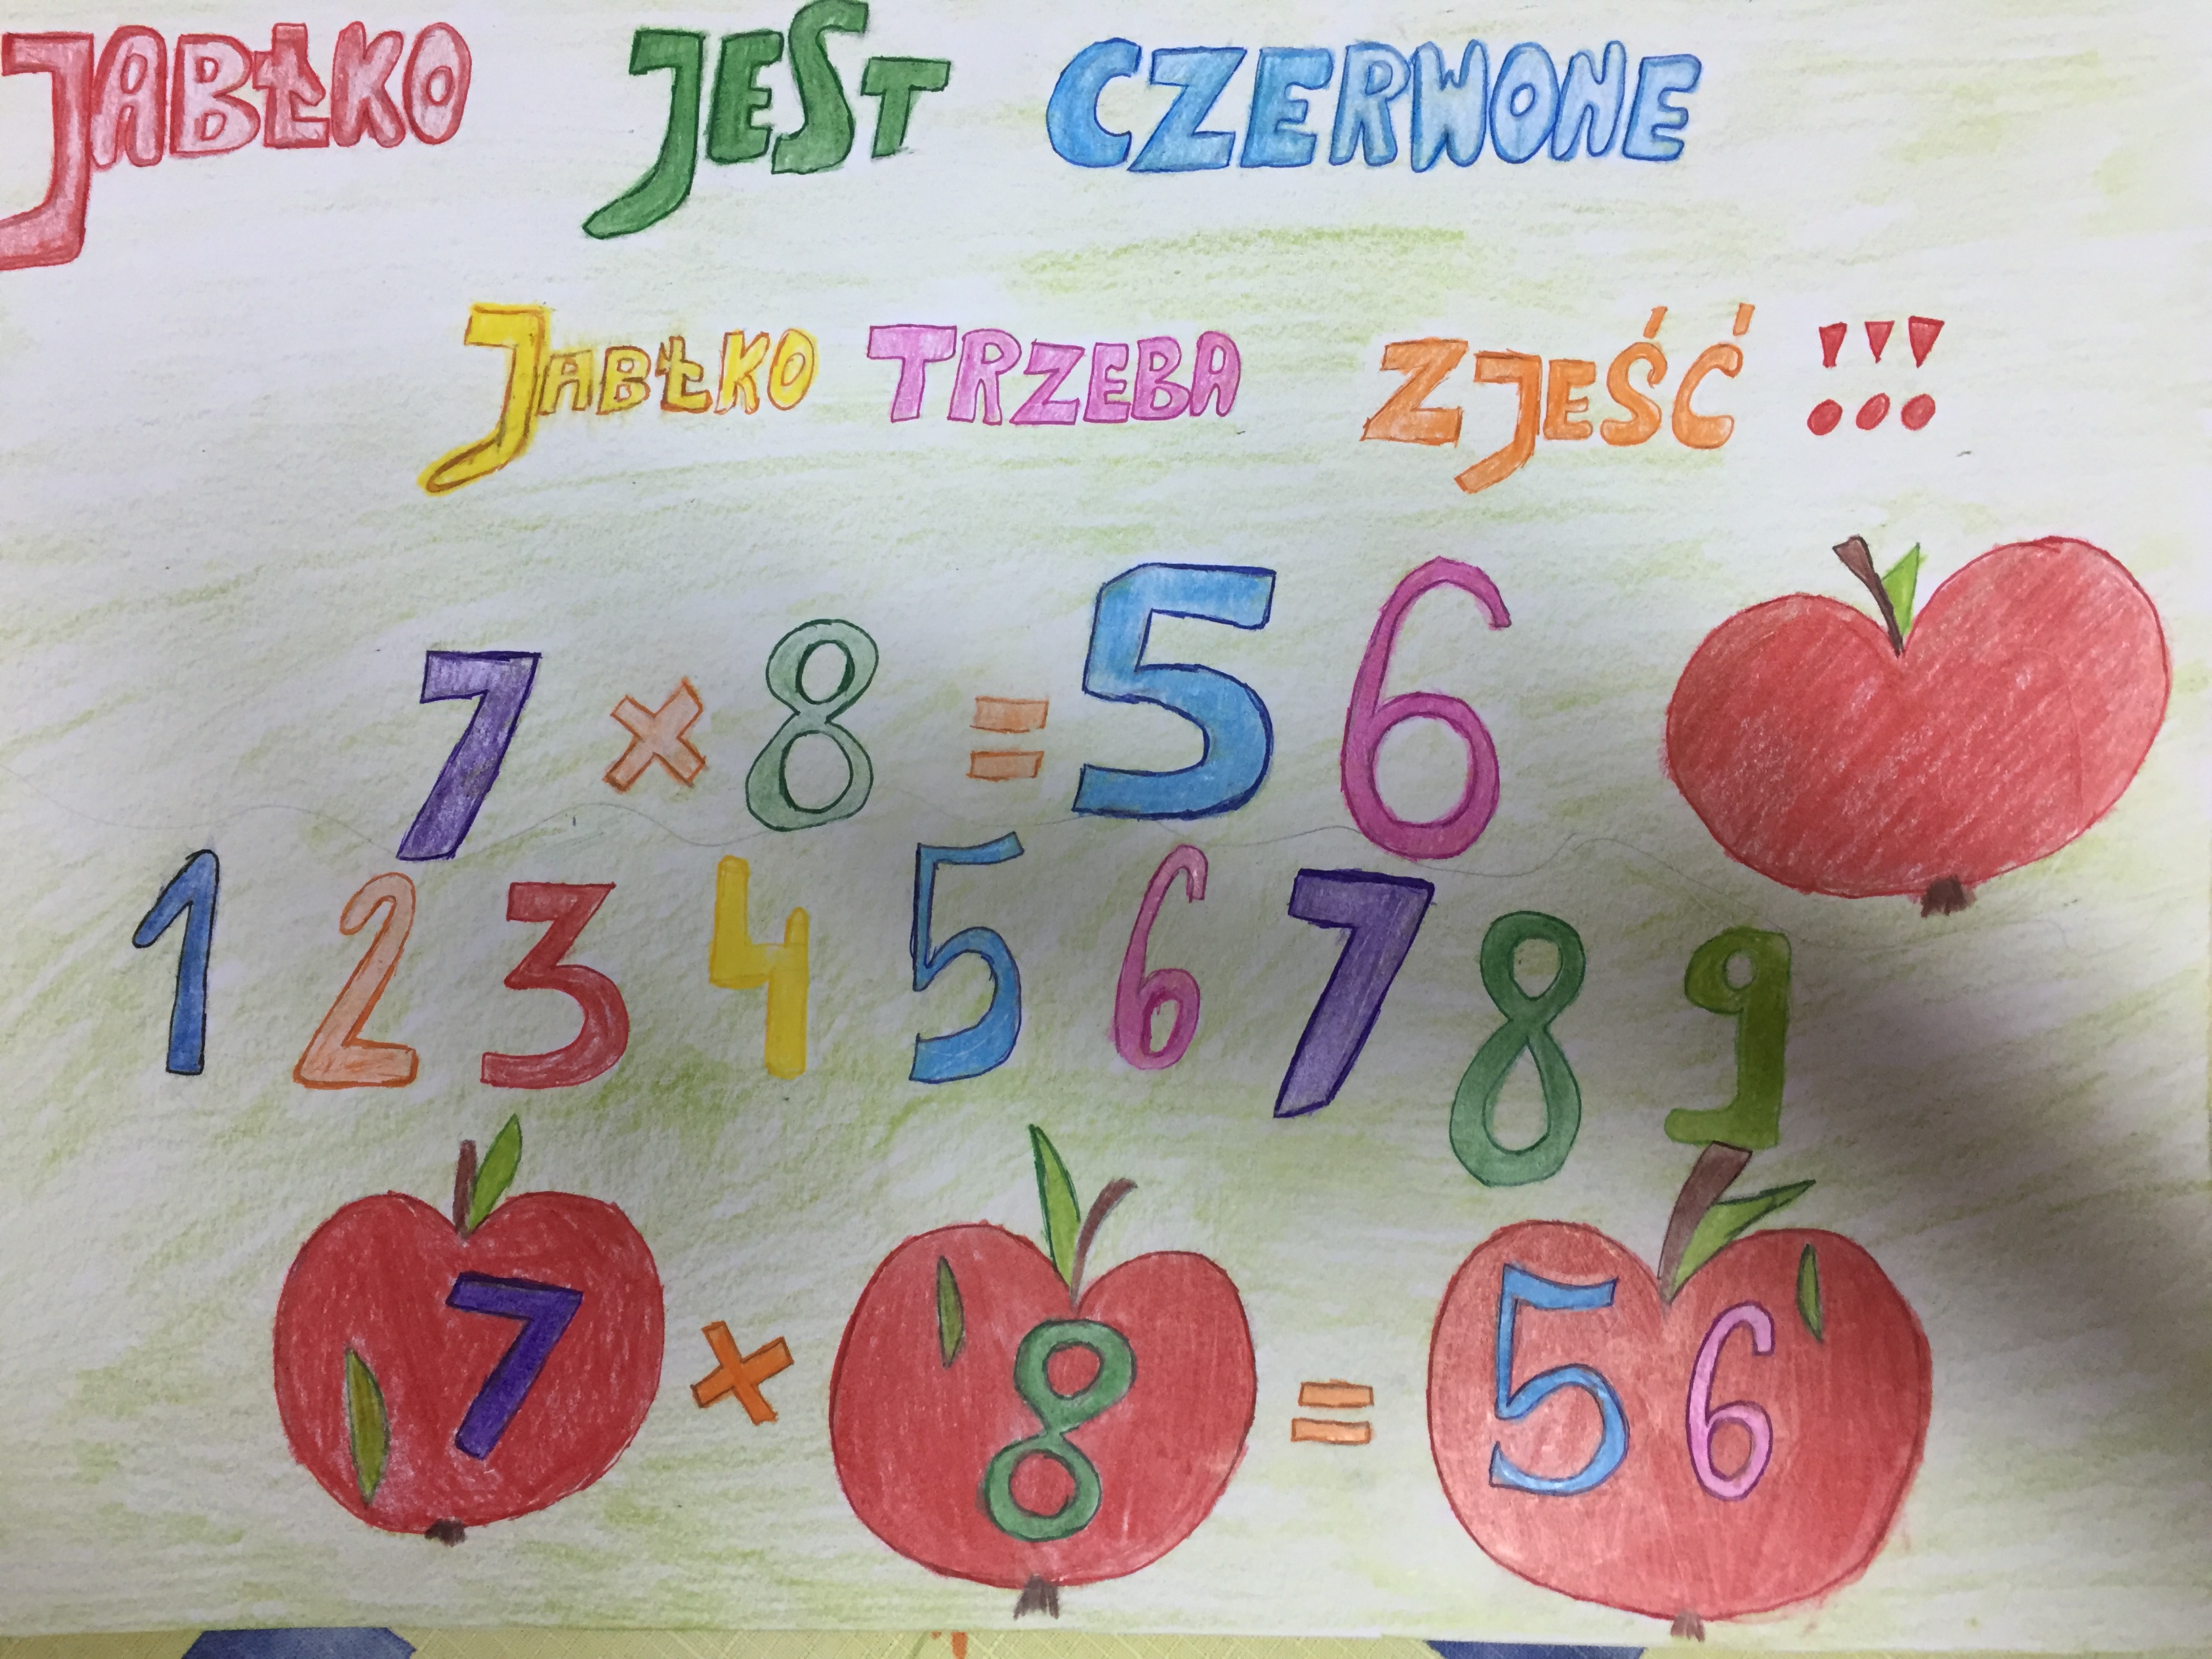 JABŁKO JEST CZERWONE
JABŁKO TRZEBA ZJEŚĆ !!!
7 × 8 = 56
1 2 3 4 5 6 7 8 9
7 × 8 = 56